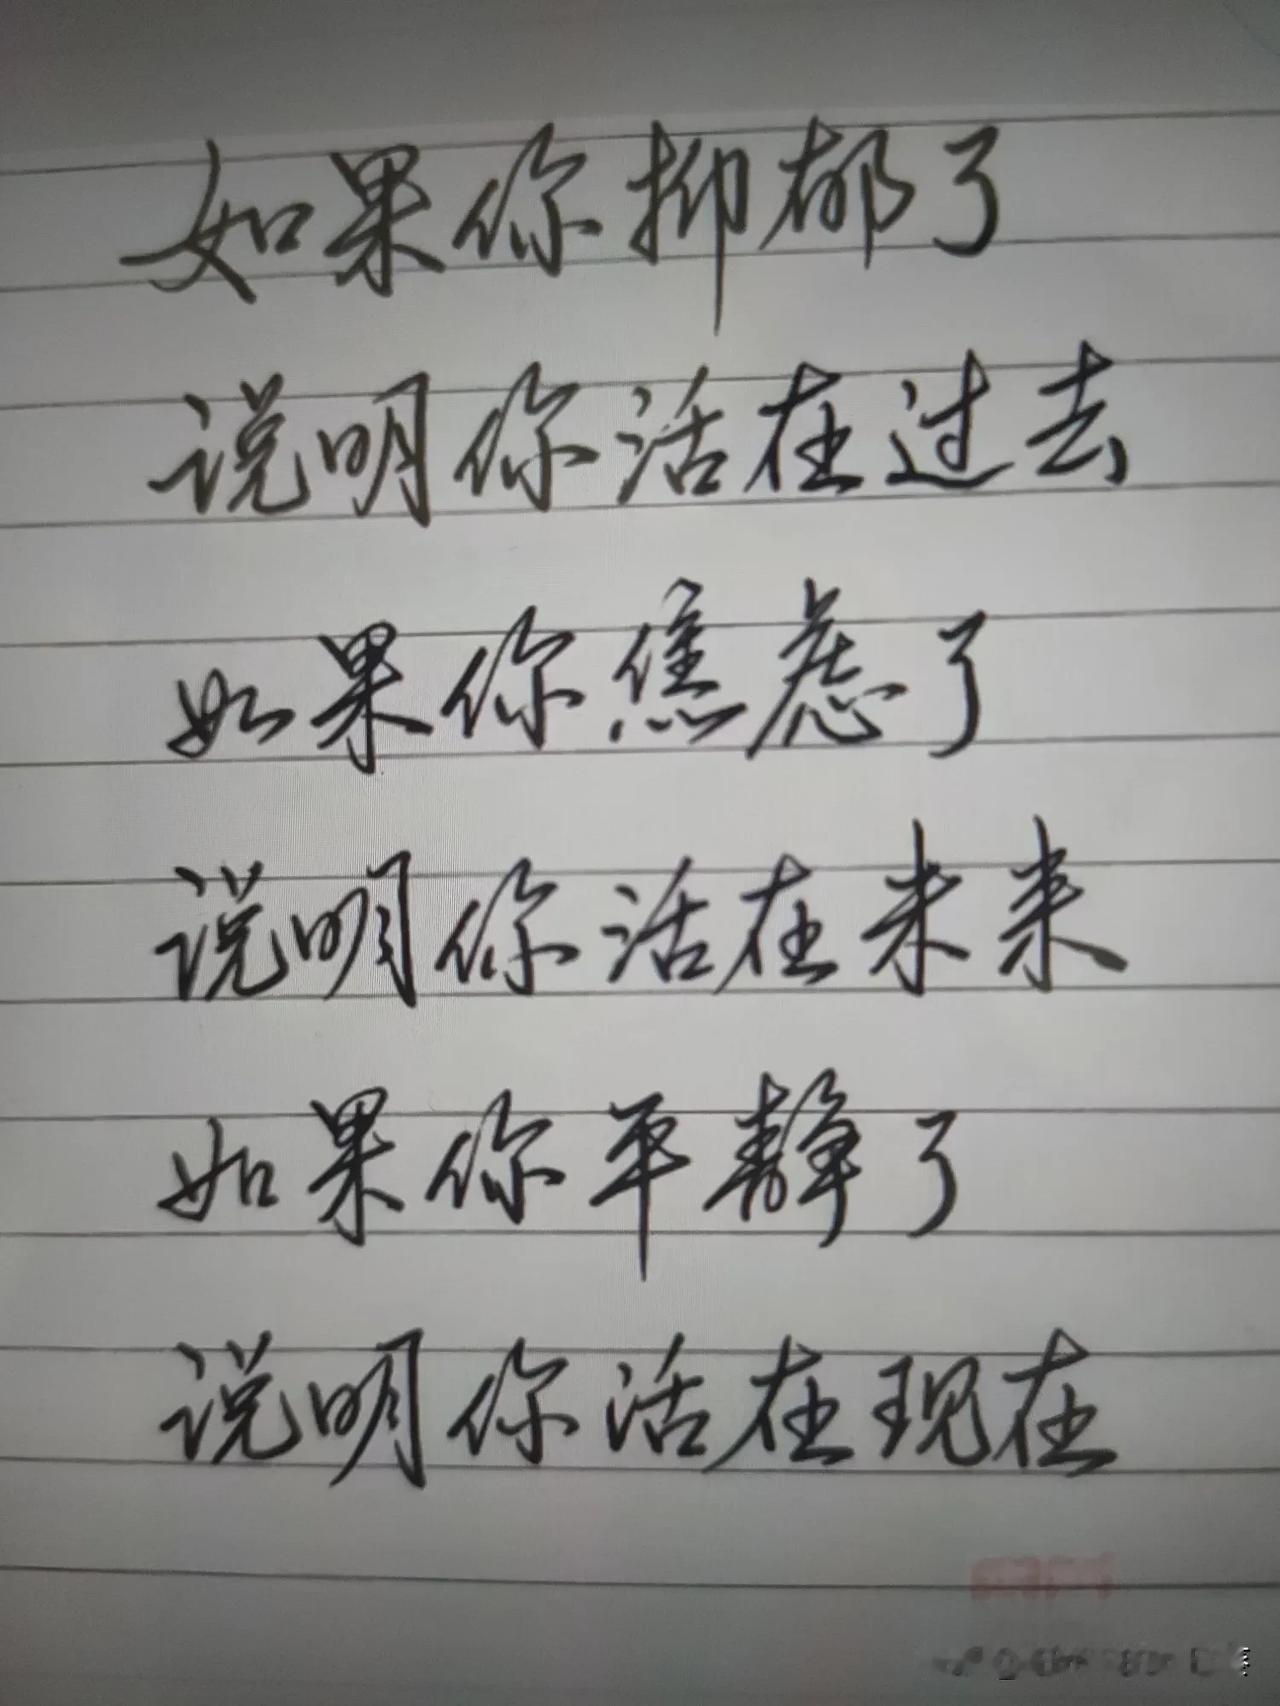 如果你抑郁了
说明你活在过去
如果你焦虑了
说明你活在未来
如果你平静了
说明你活在现在